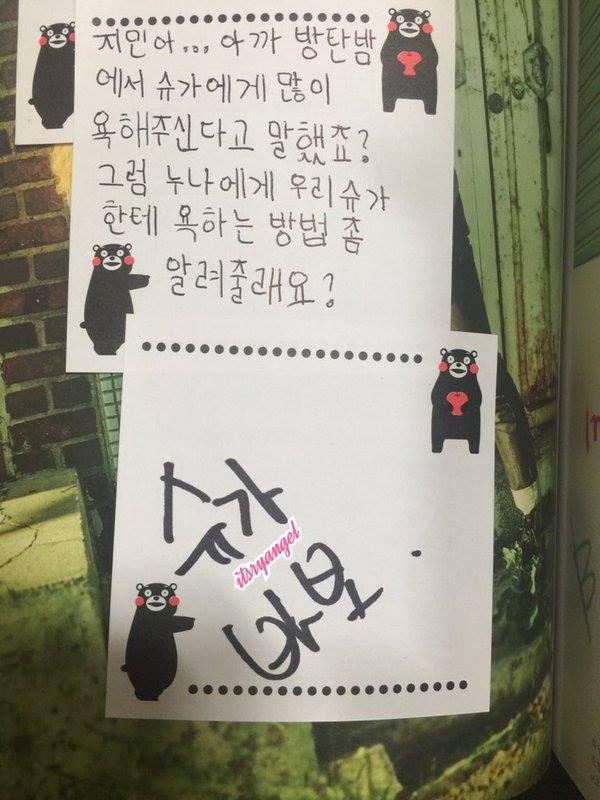 지민아... 아까 방탄밤
에서 슈가에게 많이
욕해주신다고 말했죠?
그럼 누나에게 우리슈가
한테 욕하는 방법 좀
알려줄래요?
슈가
itsryangel
바보